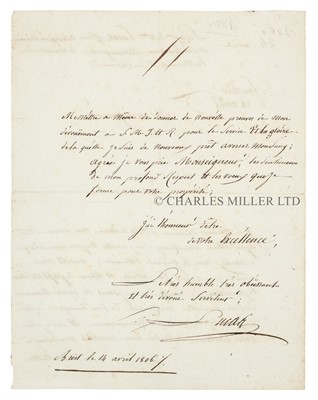 Me mettre à même de donner de nouvelle preuves de mon
dévouement à S. M. I. & R. pour le Service & la gloire
de laquelle je suis de nouveau prêt à verser mon Sang;
agréez je vous prie Monseigneur, les Sentimens
de mon profond Respect et les voeux que je
forme pour votre prospérité;
© CHARLES MILLER LTD
J'ai l'honneur d'être
de votre Excellence,
Le très humble très obéissant
et très dévoué Serviteur;
Lucas
le 14 avril 1806